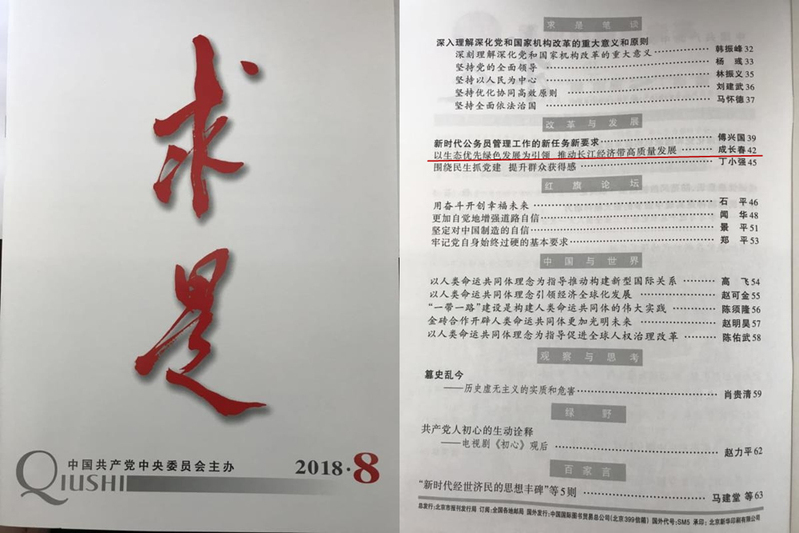 求是
中国共产党中央委员会主办
QIUSHI
2018·8
求是笔谈
深入理解深化党和国家机构改革的重大意义和原则
深刻理解深化党和国家机构改革的重大意义 韩振峰 32
坚持党的全面领导 杨彧 33
坚持以人民为中心 林振义 35
坚持优化协同高效原则 刘建武 36
坚持全面依法治国 马怀德 37
改革与发展
新时代公务员管理工作的新任务新要求 傅兴国 39
以生态优先绿色发展为引领 推动长江经济带高质量发展 成长春 42
围绕民生抓党建 提升群众获得感 丁小强 45
红旗论坛
用奋斗开创幸福未来 石平 46
更加自觉地增强道路自信 闻华 48
坚定对中国制造的自信 景平 51
牢记党自身始终过硬的基本要求 郑平 53
中国与世界
以人类命运共同体理念为指导推动构建新型国际关系 高飞 54
以人类命运共同体理念引领经济全球化发展 赵可金 55
“一带一路”建设是构建人类命运共同体的伟大实践 陈须隆 56
金砖合作开辟人类命运共同体更加光明未来 赵明昊 57
以人类命运共同体理念为指导促进全球人权治理改革 陈佑武 58
观察与思考
篡史乱今
——历史虚无主义的实质和危害 肖贵清 59
绿野
共产党人初心的生动诠释
——电视剧《初心》观后 赵力平 62
百家言
“新时代经世济民的思想丰碑”等5则 马建堂 等 63
总发行：北京市报刊发行局 订阅：全国各地邮局 国外发行：中国国际图书贸易总公司(北京399信箱) 国外代号：SM5 承印：北京新华印刷有限公司